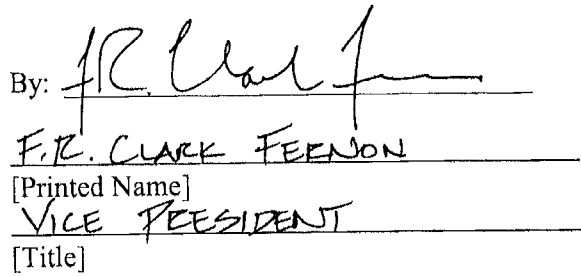 By: F.R. Clark Fernon
F.R. CLARK FERNON
[Printed Name]
VICE PRESIDENT
[Title]